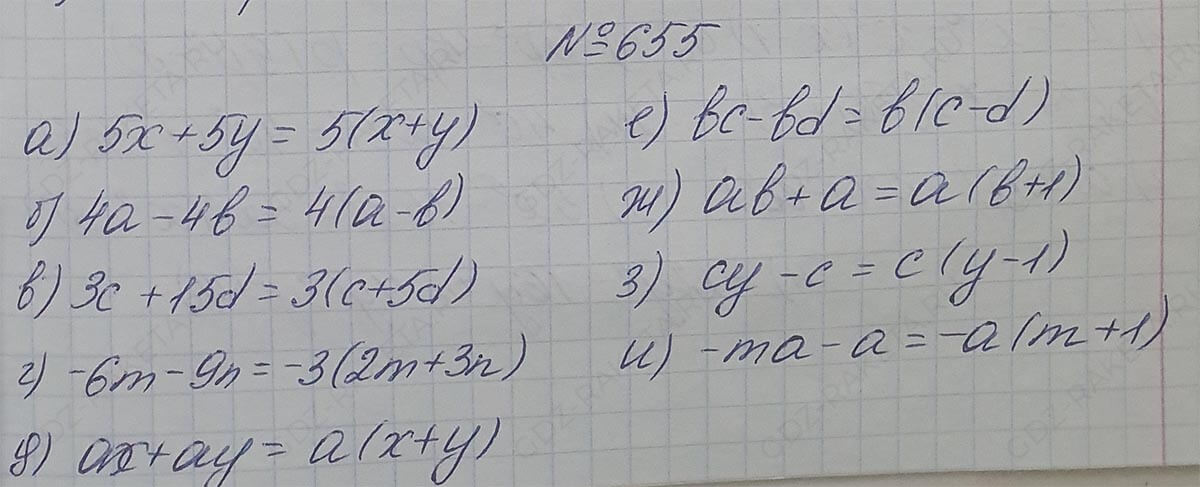 №655
а) 5x+5y = 5(x+y)
б) 4a-4b = 4(a-b)
в) 3c +15d = 3(c+5d)
г) -6m-9n=-3(2m+3n)
д) ax+ay = a(x+y)
е) bc-bd = b(c-d)
ж) ab+a = a(b+1)
з) cy-c = c(y-1)
и) -ma-a = -a(m+1)